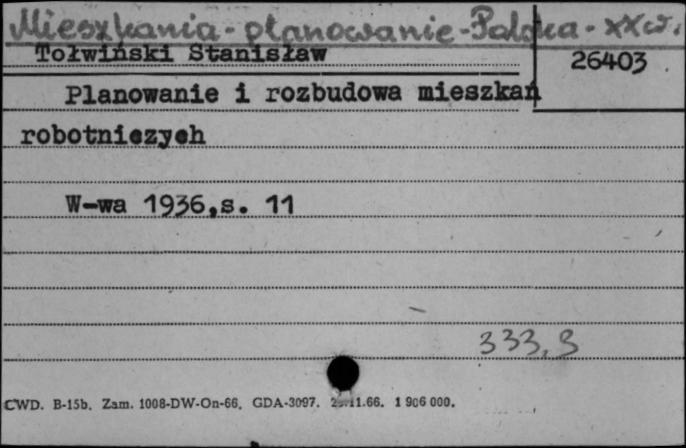 Mieszkania - planowanie - Polska - XX w.
Tołwiński Stanisław
26403
Planowanie i rozbudowa mieszkań
robotniczych
W-wa 1936,s. 11
333,3
CWD. B-15b. Zam. 1008-DW-On-66. GDA-3097. 11.66. 1 906 000.